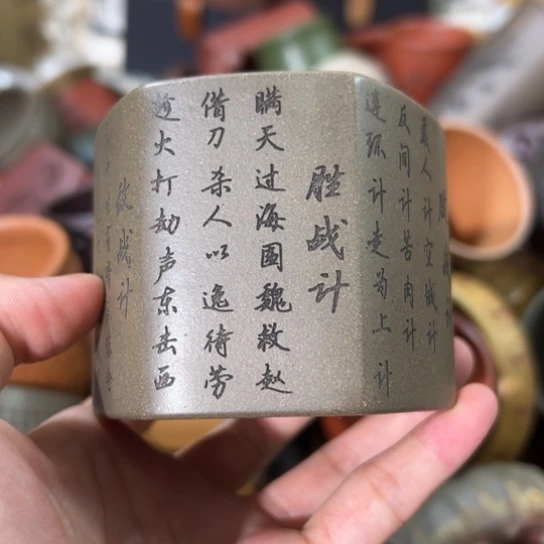 美人计空城计
反间计苦肉计
连环计走为上计
胜战计
瞒天过海围魏救赵
借刀杀人以逸待劳
趁火打劫声东击西
敌战计